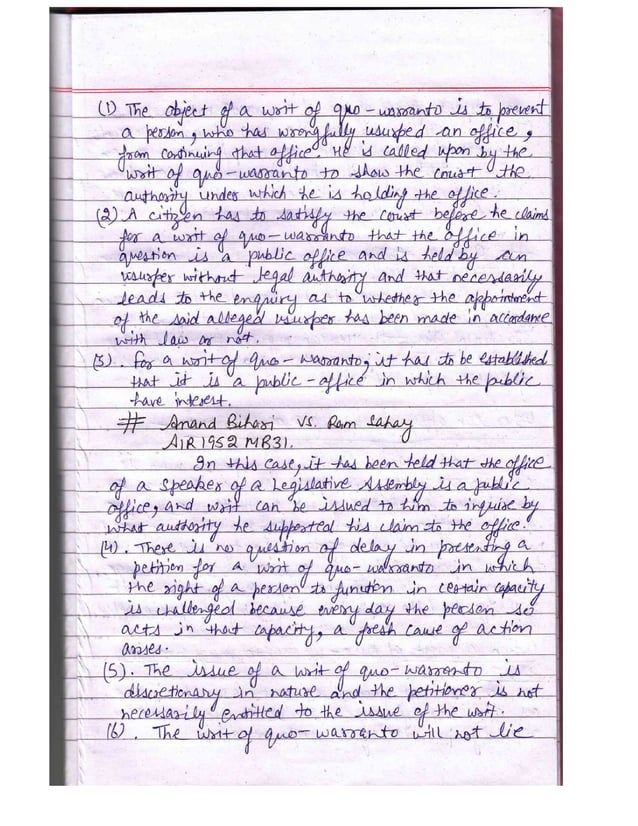 (1) The object of a writ of quo-warranto is to prevent
a person, who has wrongfully usurped an office,
from continuing that office. He is called upon by the
writ of quo-warranto to show the court the
authority under which he is holding the office.
(2) A citizen has to satisfy the court before he claims
for a writ of quo-warranto that the office in
question is a public office and is held by an
usurper without legal authority and that necessarily
leads to the enquiry as to whether the appointment
of the said alleged usurper has been made in accordance
with law or not.
(3). For a writ of quo-warranto, it has to be established
that it is a public-office in which the public
have interest.
# Anand Bihari vs. Ram Sahay
AIR 1952 MB31.
In this case, it has been held that the office
of a Speaker of a Legislative Assembly is a public
office, and writ can be issued to him to inquire by
what authority he supported his claim to the office.
(4). There is no question of delay in presenting a
petition for a writ of quo-warranto in which
the right of a person to function in certain capacity
is challenged because every day the person so
acts in that capacity, a fresh cause of action
arises.
(5). The issue of a writ of quo-warranto is
discretionary in nature and the petitioner is not
necessarily entitled to the issue of the writ.
(6). The writ of quo-warranto will not lie